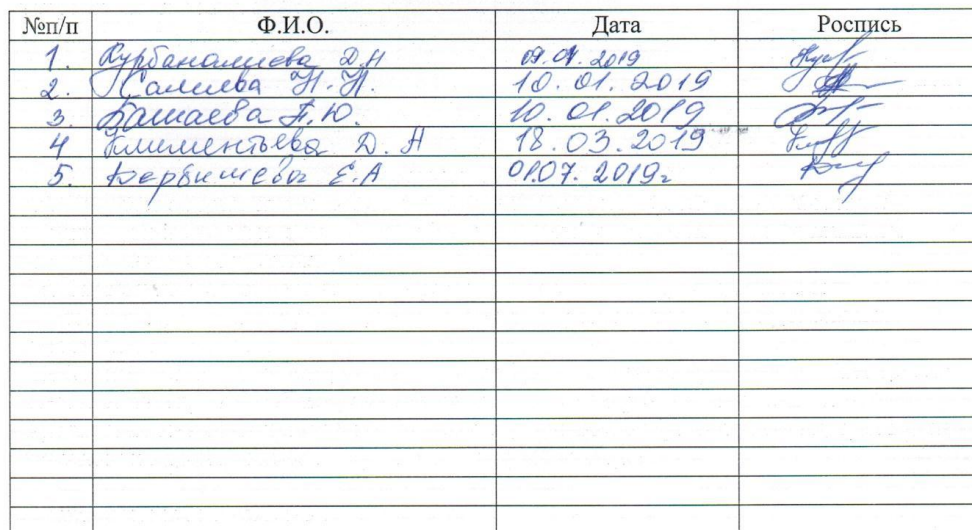 №п/п Ф.И.О. Дата Роспись
1. Курбаналиева Д.Н 09.01.2019
2. Салиева Н.Н. 10.01.2019
3. Башаева Т.Ю. 10.01.2019
4 Климентьева Д.А 18.03.2019
5. Е.А 01.07.2019г